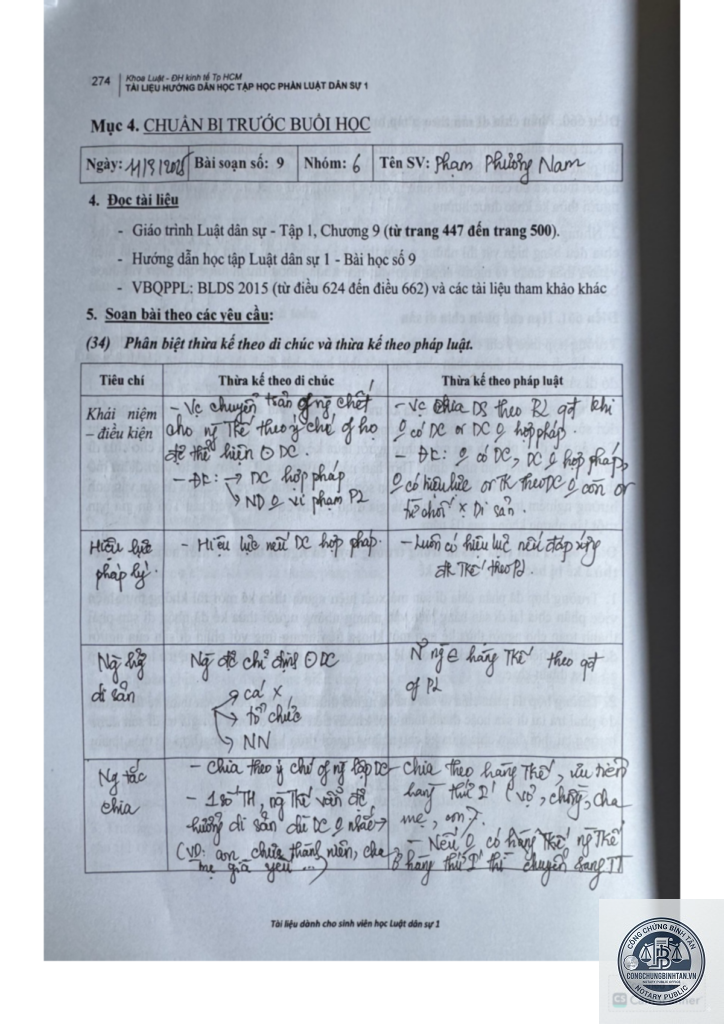 274 Khoa Luật - ĐH kinh tế Tp HCM
TÀI LIỆU HƯỚNG DẪN HỌC TẬP HỌC PHẦN LUẬT DÂN SỰ 1
Mục 4. CHUẨN BỊ TRƯỚC BUỔI HỌC
Ngày: 11/8/2025 Bài soạn số: 9 Nhóm: 6 Tên SV: Phạm Phương Nam
4. Đọc tài liệu
- Giáo trình Luật dân sự - Tập 1, Chương 9 (từ trang 447 đến trang 500).
- Hướng dẫn học tập Luật dân sự 1 - Bài học số 9
- VBQPPL: BLDS 2015 (từ điều 624 đến điều 662) và các tài liệu tham khảo khác
5. Soạn bài theo các yêu cầu:
(34) Phân biệt thừa kế theo di chúc và thừa kế theo pháp luật.
Tiêu chí Thừa kế theo di chúc Thừa kế theo pháp luật
Khái niệm
– điều kiện
- Vc chuyển tsản of ng chết
cho ng TKế theo ý chí of họ
đc thể hiện ⊙ DC.
- ĐK: → DC hợp pháp
→ ND vi phạm PL
- Vc chia DS theo PL qđ khi
có DC or DC hợp pháp.
- ĐK: có DC, DC hợp pháp,
có hiệu lực or TK theo DC còn or
từ chối Di sản.
Hiệu lực
pháp lý.
- Hiệu lực nếu DC hợp pháp.
- Luôn có hiệu lực nếu đáp ứng
đk TKế theo PL.
Ng hg
di sản
Ng đc chỉ định ⊙ DC
→ cá
→ tổ chức
→ NN
ng ∈ hàng TKế theo qđ
of PL
Ng tắc
chia
- Chia theo ý chí of ng lập DC
- 1 số TH, ng TKế vẫn đc
hưởng di sản dù DC nhắc →
(VD: con chưa thành niên, cha
mẹ già yếu ...)
- Chia theo hàng TKế, ưu tiên
hàng thứ I (vợ, chồng, cha
mẹ, con).
- Nếu có hàng TKế, ng TKế
hàng thứ I thì chuyển sang TT
Tài liệu dành cho sinh viên học Luật dân sự 1
CÔNG CHỨNG BÌNH TÂN
CONGCHUNGBINHTAN.VN
NOTARY PUBLIC OFFICE
NOTARY PUBLIC